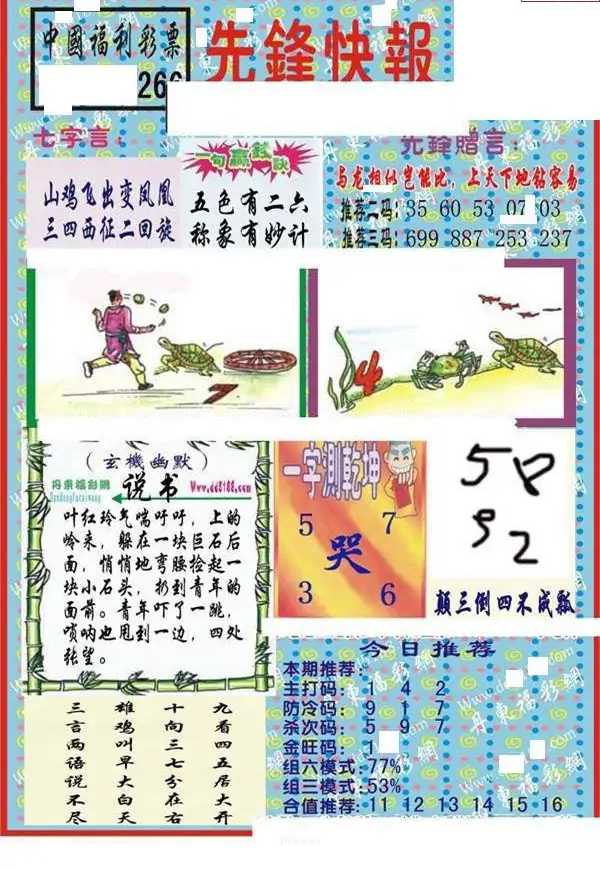 中國福利彩票
266
先鋒快報
七字言：
山鸡飞出变凤凰
三四西征二回旋
一句赢錢訣
五色有二六
称象有妙计
先鋒赠言：
与龙相似岂能比，上天下地钻容易
推荐二码：35 60 53 07 03
推荐三码：699 887 253 237
7
4
（玄機幽默）
丹東福彩網
Dandongfucaiwang
说书
Www.dd8188.com
叶红玲气喘吁吁，上的
岭来，躲在一块巨石后
面，悄悄地弯腰捡起一
块小石头，扔到青年的
面前。青年吓了一跳，
唢呐也甩到一边，四处
张望。
一字测乾坤
5 7
哭
3 6
58
92
顛三倒四不成瓢
三言两语说不尽
雄鸡叫早大白天
十句三七分在右
九看四五居大开
今日推荐
本期推荐：
主打码：1 4 2
防冷码：9 1 7
杀次码：5 9 7
金旺码：1
组六模式：77%
组三模式：53%
合值推荐：11 12 13 14 15 16